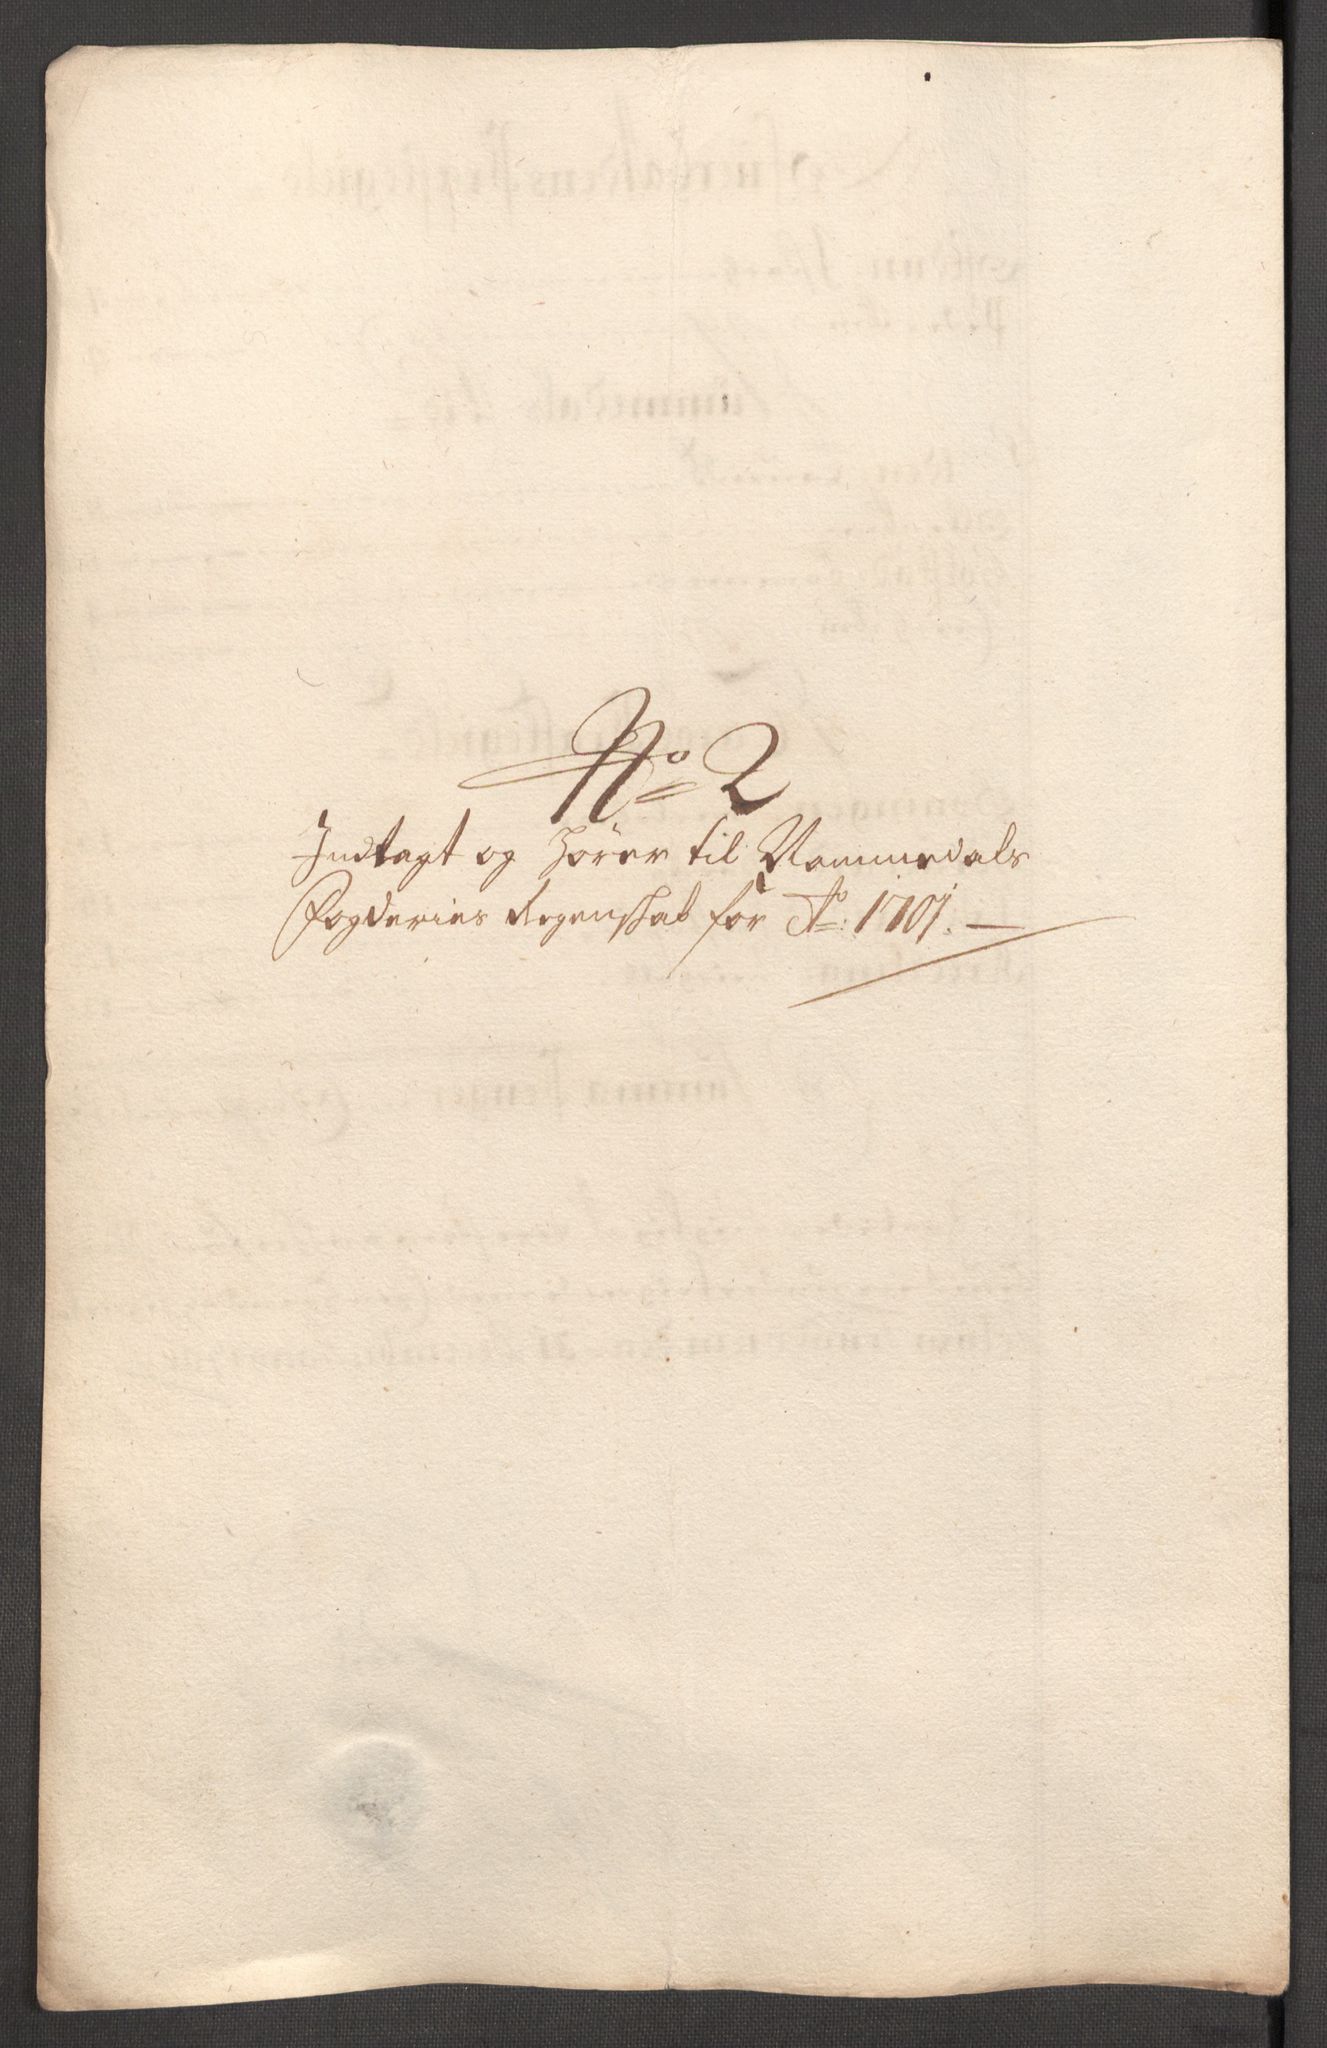 No 2
Indtagt og hører til Nommedals
Fogderies Regenskab for Ao: 1701. —